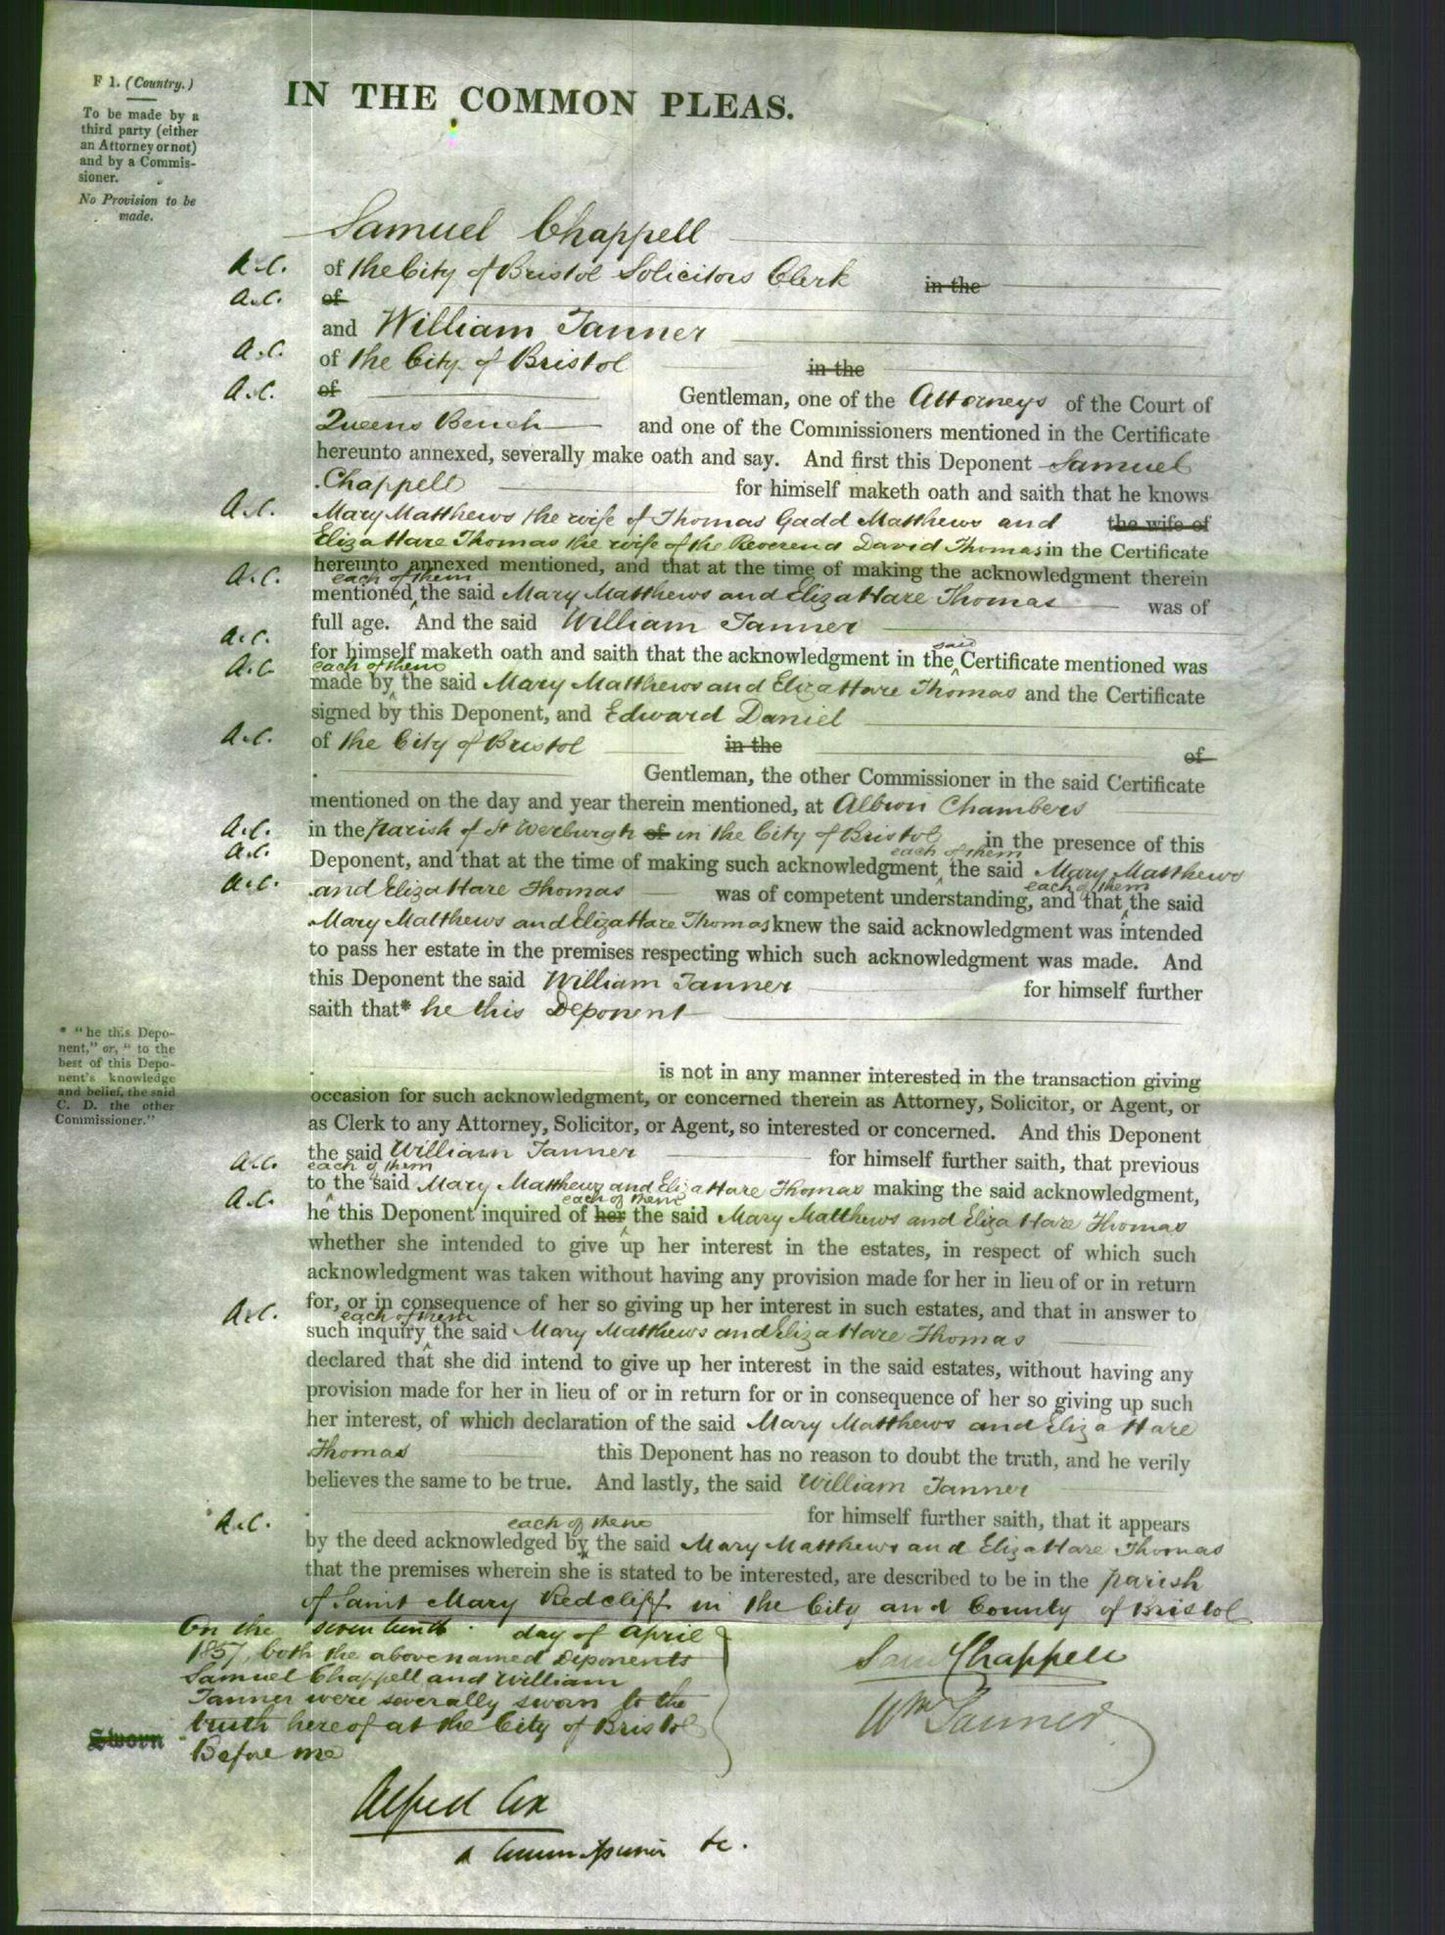 F 1. (Country.)
To be made by a
third party (either
an Attorney or not)
and by a Commis-
sioner.
No Provision to be
made.
IN THE COMMON PLEAS.
Samuel Chappell
A.C. of the City of Bristol Solicitors Clerk in the
A.C. of
and William Tanner
A.C. of the City of Bristol in the
A.C. of Gentleman, one of the Attorneys of the Court of
Queens Bench and one of the Commissioners mentioned in the Certificate
hereunto annexed, severally make oath and say. And first this Deponent Samuel
Chappell for himself maketh oath and saith that he knows
A.C. Mary Matthews the wife of Thomas Gadd Matthews and the wife of
Eliza Hare Thomas the wife of the Reverend David Thomas in the Certificate
hereunto annexed mentioned, and that at the time of making the acknowledgment therein
each of them
A.C. mentioned, the said Mary Matthews and Eliza Hare Thomas was of
full age. And the said William Tanner
said
A.C. for himself maketh oath and saith that the acknowledgment in the Certificate mentioned was
each of them
A.C. made by the said Mary Matthews and Eliza Hare Thomas and the Certificate
signed by this Deponent, and Edward Daniel
A.C. of the City of Bristol in the of
Gentleman, the other Commissioner in the said Certificate
mentioned on the day and year therein mentioned, at Albion Chambers
A.C. in the parish of St Werburgh of in the City of Bristol in the presence of this
each of them
A.C. Deponent, and that at the time of making such acknowledgment, the said Mary Matthews
each of them
A.C. and Eliza Hare Thomas was of competent understanding, and that the said
Mary Matthews and Eliza Hare Thomas knew the said acknowledgment was intended
to pass her estate in the premises respecting which such acknowledgment was made. And
this Deponent the said William Tanner for himself further
saith that* he this Deponent
* "he this Depo-
nent," or, "to the
best of this Depo-
nent's knowledge
and belief, the said
C. D. the other
Commissioner."
is not in any manner interested in the transaction giving
occasion for such acknowledgment, or concerned therein as Attorney, Solicitor, or Agent, or
as Clerk to any Attorney, Solicitor, or Agent, so interested or concerned. And this Deponent
the said William Tanner for himself further saith, that previous
each of them
A.C. to the said Mary Matthews and Eliza Hare Thomas making the said acknowledgment,
each of them
A.C. he this Deponent inquired of her the said Mary Matthews and Eliza Hare Thomas
whether she intended to give up her interest in the estates, in respect of which such
acknowledgment was taken without having any provision made for her in lieu of or in return
for, or in consequence of her so giving up her interest in such estates, and that in answer to
each of them
A.C. such inquiry the said Mary Matthews and Eliza Hare Thomas
declared that she did intend to give up her interest in the said estates, without having any
provision made for her in lieu of or in return for or in consequence of her so giving up such
her interest, of which declaration of the said Mary Matthews and Eliza Hare
Thomas this Deponent has no reason to doubt the truth, and he verily
believes the same to be true. And lastly, the said William Tanner
for himself further saith, that it appears
each of them
A.C. by the deed acknowledged by the said Mary Matthews and Eliza Hare Thomas
that the premises wherein she is stated to be interested, are described to be in the parish
of Saint Mary Redcliff in the City and County of Bristol
On the seventeenth day of April
1857, both the abovenamed Deponents
Samuel Chappell and William
Tanner were severally sworn to the
truth hereof at the City of Bristol
Sworn
Before me
Sam Chappell
Wm Tanner
Alfred Cox
A Commissioner &c.